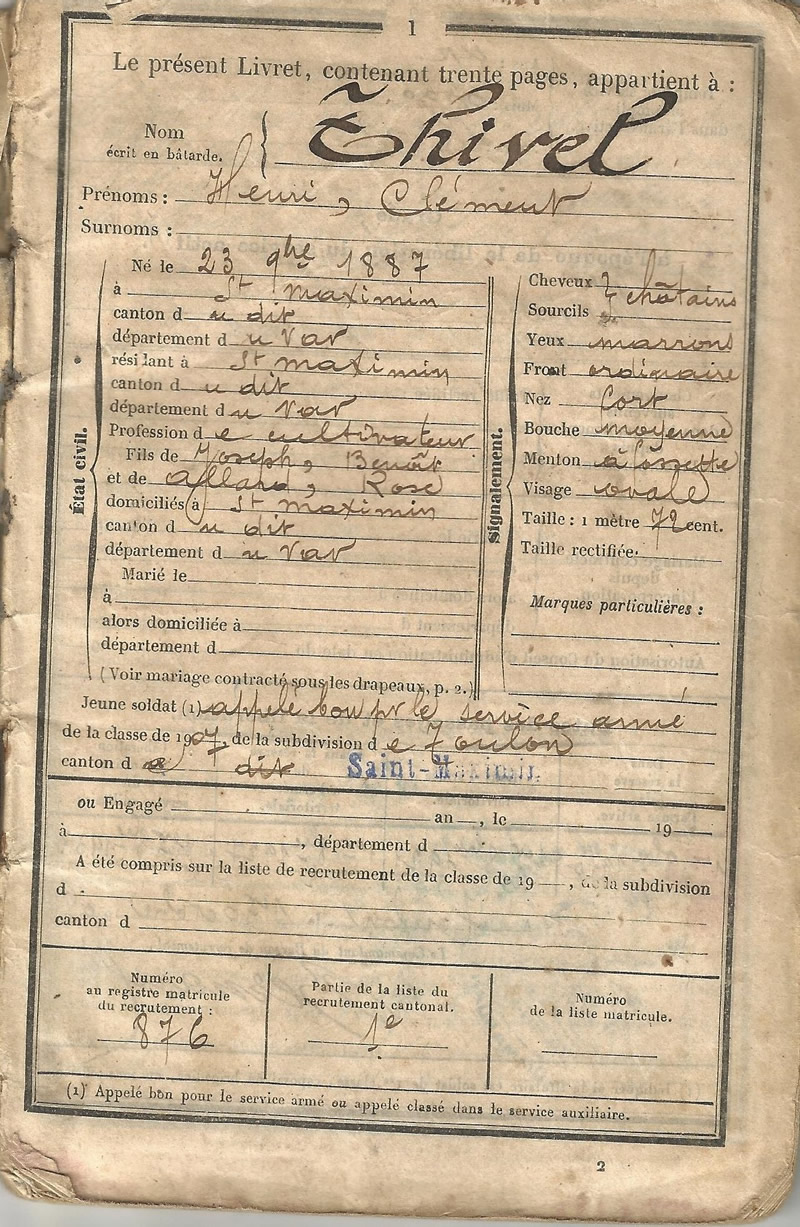 1
Le présent Livret, contenant trente pages, appartient à :
Nom
écrit en bâtarde.
Thivel
Prénoms : Henri, Clément
Surnoms :
État civil.
Né le 23 9bre 1887
à St Maximin
canton du dit
département du Var
résidant à St Maximin
canton du dit
département du Var
Profession de cultivateur
Fils de Joseph, Benoît
et de Allard, Rose
domiciliés à St Maximin
canton du dit
département du Var
Marié le
à
alors domiciliée à
département d
(Voir mariage contracté sous les drapeaux, p. 2.)
Signalement.
Cheveux
Sourcils
châtains
Yeux marrons
Front ordinaire
Nez fort
Bouche moyenne
Menton à fossette
Visage ovale
Taille : 1 mètre 72 cent.
Taille rectifiée:
Marques particulières :
Jeune soldat (1) appelé bon pr le service armé
de la classe de 1907, de la subdivision de Toulon
canton d dit Saint-Maximin
ou Engagé an , le 19
à , département d
A été compris sur la liste de recrutement de la classe de 19 , de la subdivision
d
canton d
Numéro
au registre matricule
du recrutement :
876
Partie de la liste du
recrutement cantonal.
1e
Numéro
de la liste matricule.
(1) Appelé bon pour le service armé ou appelé classé dans le service auxiliaire.
2